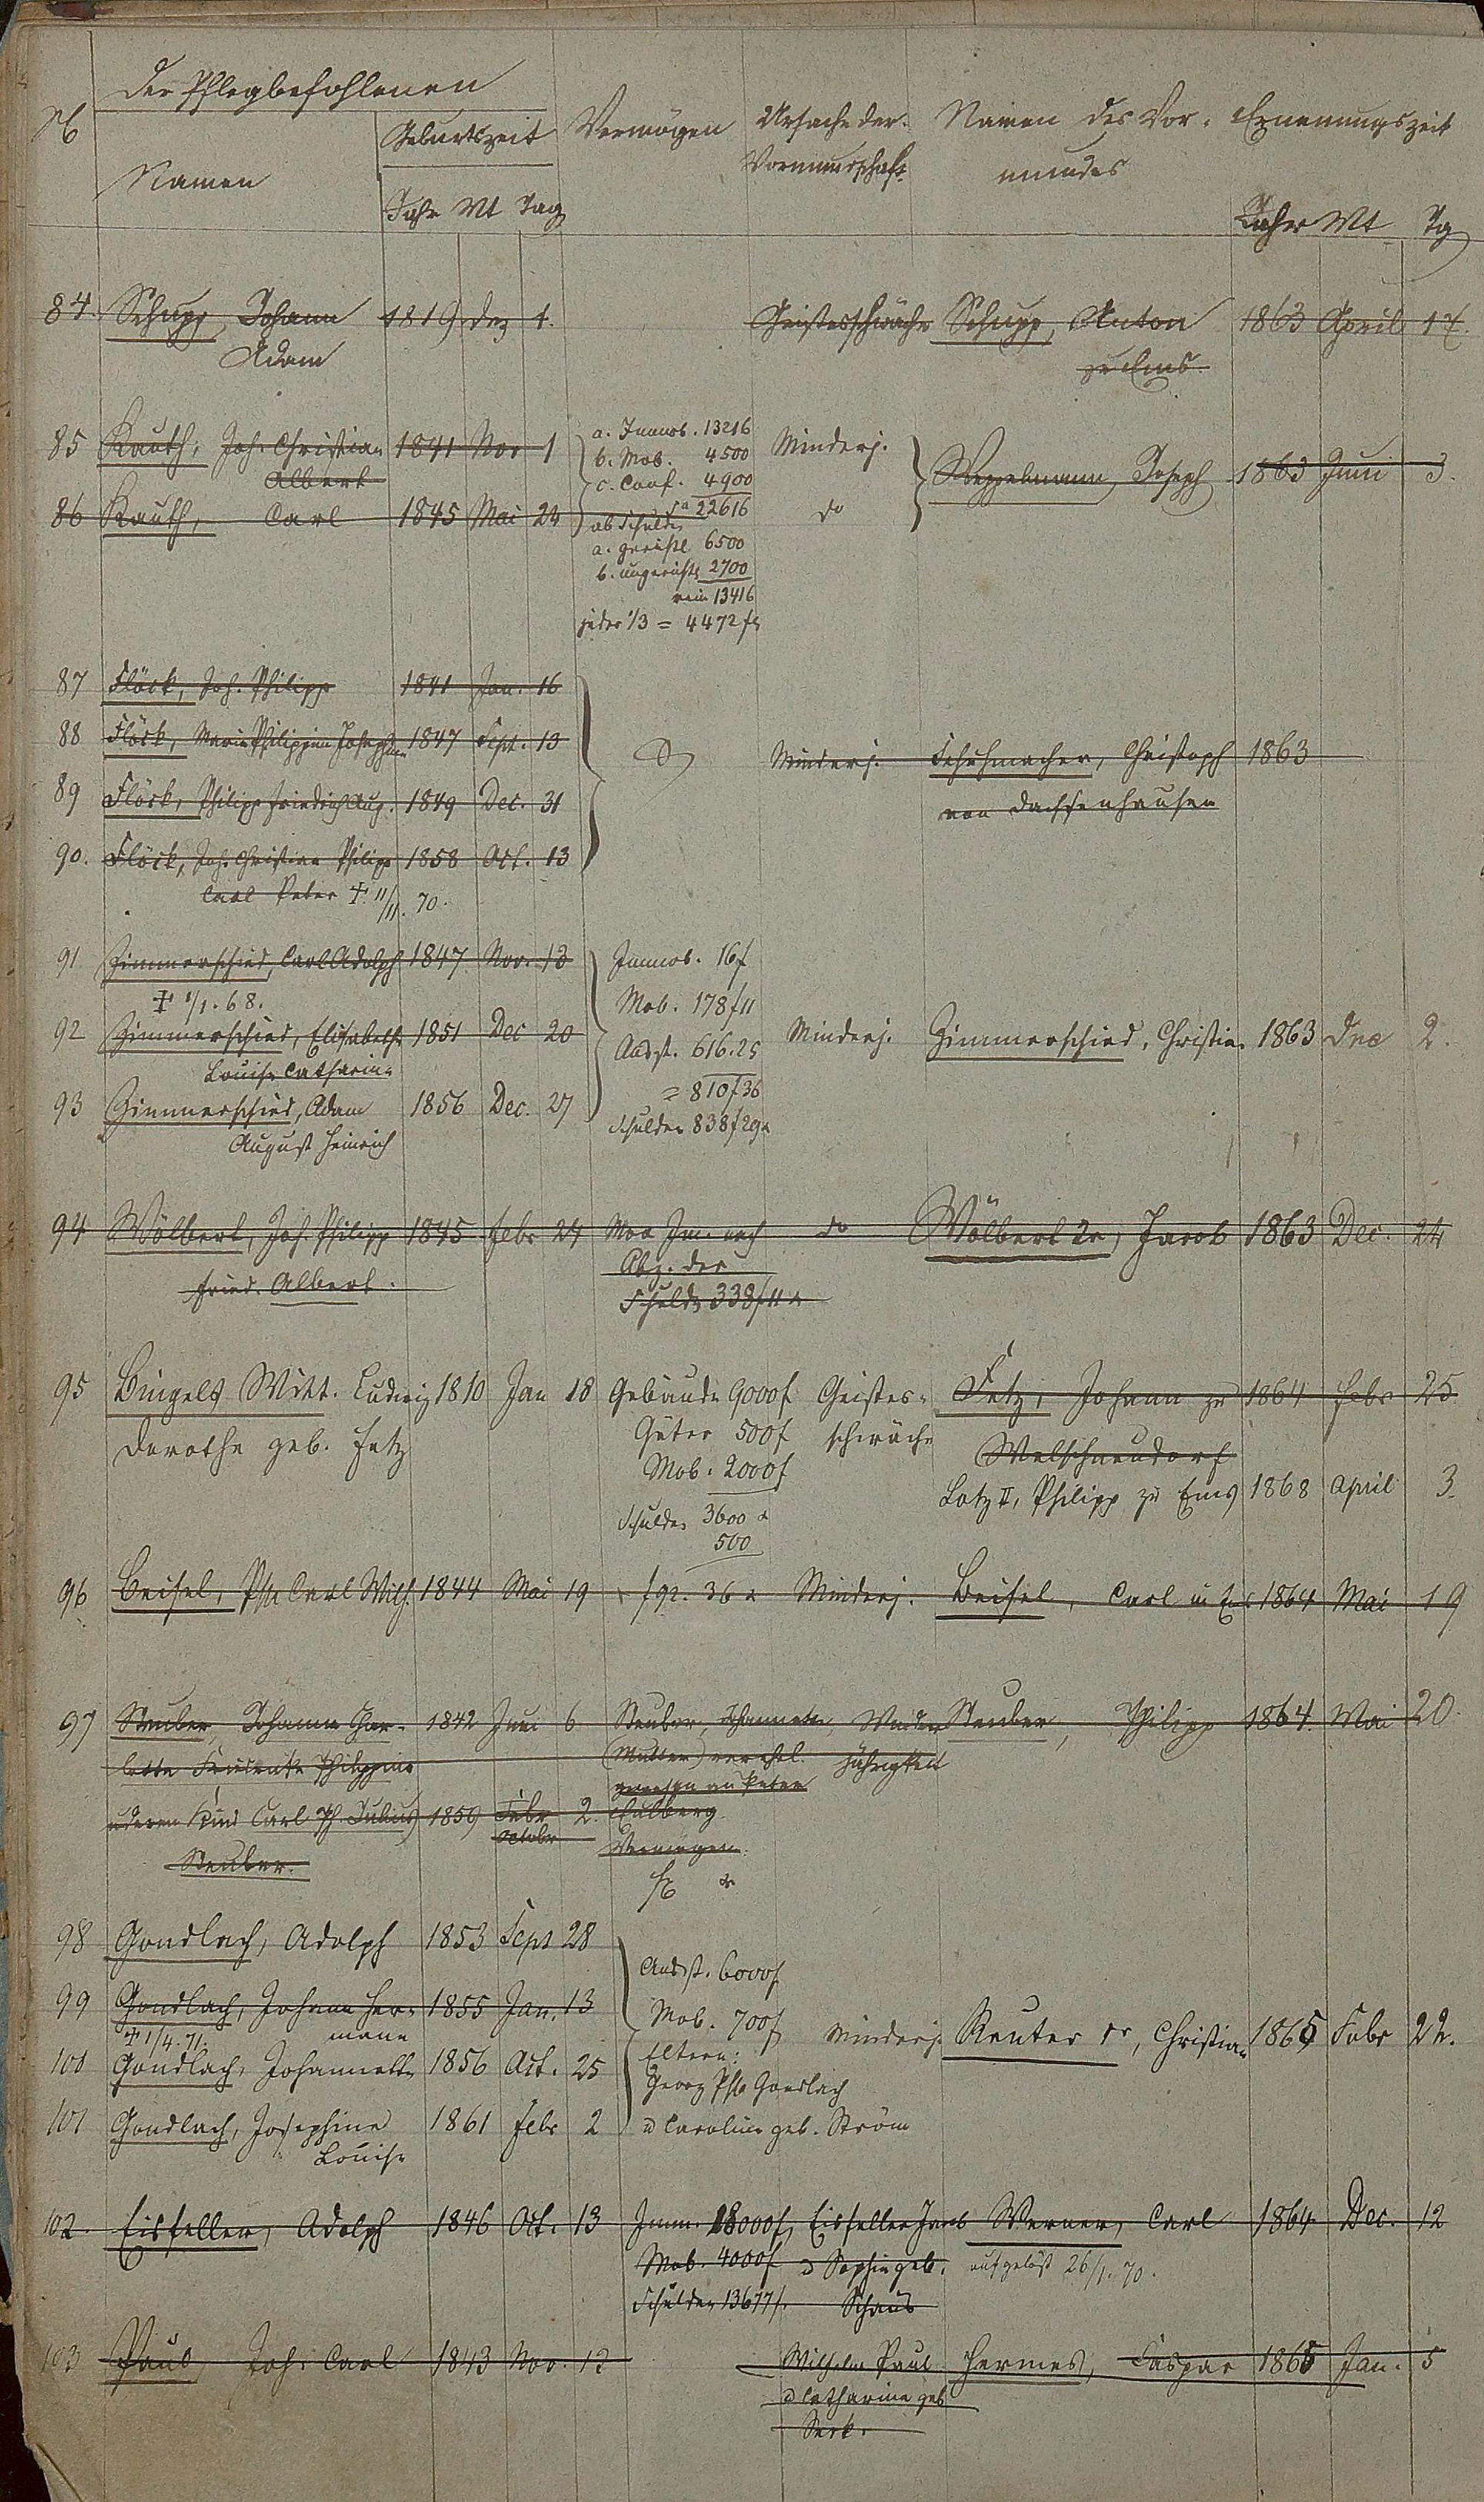 Der Pflegbefohlenen
№ Namen Geburtszeit Vermögen Ursache der Vormundschaft Namen des Vor- Ernennungszeit
mundes
Jahr Mt Tag Jahr Mt Tg
84. Schupp, Johann 1819 Dez 1. Geistesschwäche Schupp, Anton 1863 April 17.
Adam zu Ems.
85 Kauth, Joh. Christian 1841 Nov 1 a. Immob. 13216 Minderj.
Albert b. Mob. 4500
c. Cauf. 4900 Joseph 1863 Juni 3.
86 Kauth, Carl 1845 Mai 24 Sa 22616 do
ab Schulden
a. gerichtl 6500
b. ungerichtl 2700
rein 13416
jeder 1/3 = 4472 fl
87 Flöck, Joh. Philipp 1841 Jan. 16
88 Flöck, Marie Philippine Josephine 1847 Sept. 13 Minderj. Schuhmacher, Christoph 1863
89 Flöck, Philipp Friedrich Aug. 1849 Dec. 31 von Dachsenhausen
90. Flöck, Joh. Christian Philipp 1858 Oct. 13
Carl Peter † 11/11. 70.
91 Zimmerschied, Carl Adolph 1847 Nov. 13 Immob. 16 f
† 1/1. 68. Mob. 178 f 11
92 Zimmerschied, Elisabeth 1851 Dec 20 Ausst. 616.25 Minderj. Zimmerschied, Christian 1863 Dec 2.
Louise Catharine = 810 f 36
93 Zimmerschied, Adam 1856 Dec. 27 Schulden 838 f 29 x
August Heinrich
94 Wölbert, Joh. Philipp 1845 Febr 24 Mob Im. nach do Wölbert 2r, Jacob 1863 Dec. 24
Fried. Albert. Abz. der
Schulden 338 f 11 x
95 Bingels Witt. Ludwig 1810 Jan 18 Gebäude 9000 f Geistes- Fetz, Johann zu 1864 Febr 25
Dorothe geb. Fetz Güter 500 f schwäche Welschneudorf
Mob. 2000 f Lotz II, Philipp zu Ems 1868 April 3.
Schulden 3600 x
500
96 Beisel, Ph. Carl Wilh. 1844 Mai 19 f 92. 36 x Minderj. Beisel, Carl in Ems 1864 Mai 19
97 Steuber, Johanna Char- 1842 Juni 6 Steuber, Johannette, Minder Steuber, Philipp 1864. Mai 20.
lotte Friederike Philippine (Mutter) verehel. jährigkeit
u deren Kind Carl Ph. Julius 1859 Febr 2. gewesen an Peter
October Eulberg
Steuber. Vermögen
98 Gondlach, Adolph 1853 Sept 28
Ausst. 6000 f
99 Gondlach, Johann Her- 1855 Jan. 13 Mob. 700 f Minderj. Reuter 1r, Christian 1865 Febr 22.
† 1/4. 71. mann Eltern:
100 Gondlach, Johannette 1856 Oct. 25 Georg Ph. Gondlach
101 Gondlach, Josephine 1861 Febr 2 u Caroline geb. Ström
Louise
102. Eisfeller, Adolph 1846 Oct. 13 Imm. 18000 f Eisfeller Jacob Werner, Carl 1864 Dec. 12
Mob. 4000 f u Sophie geb. aufgelöst 26/1. 70.
Schulden 13677 f. Schaus
103 Paul, Joh. Carl 1843 Nov. 12 Wilhelm Paul Hermes, Caspar 1865 Jan. 5
u Catharine geb